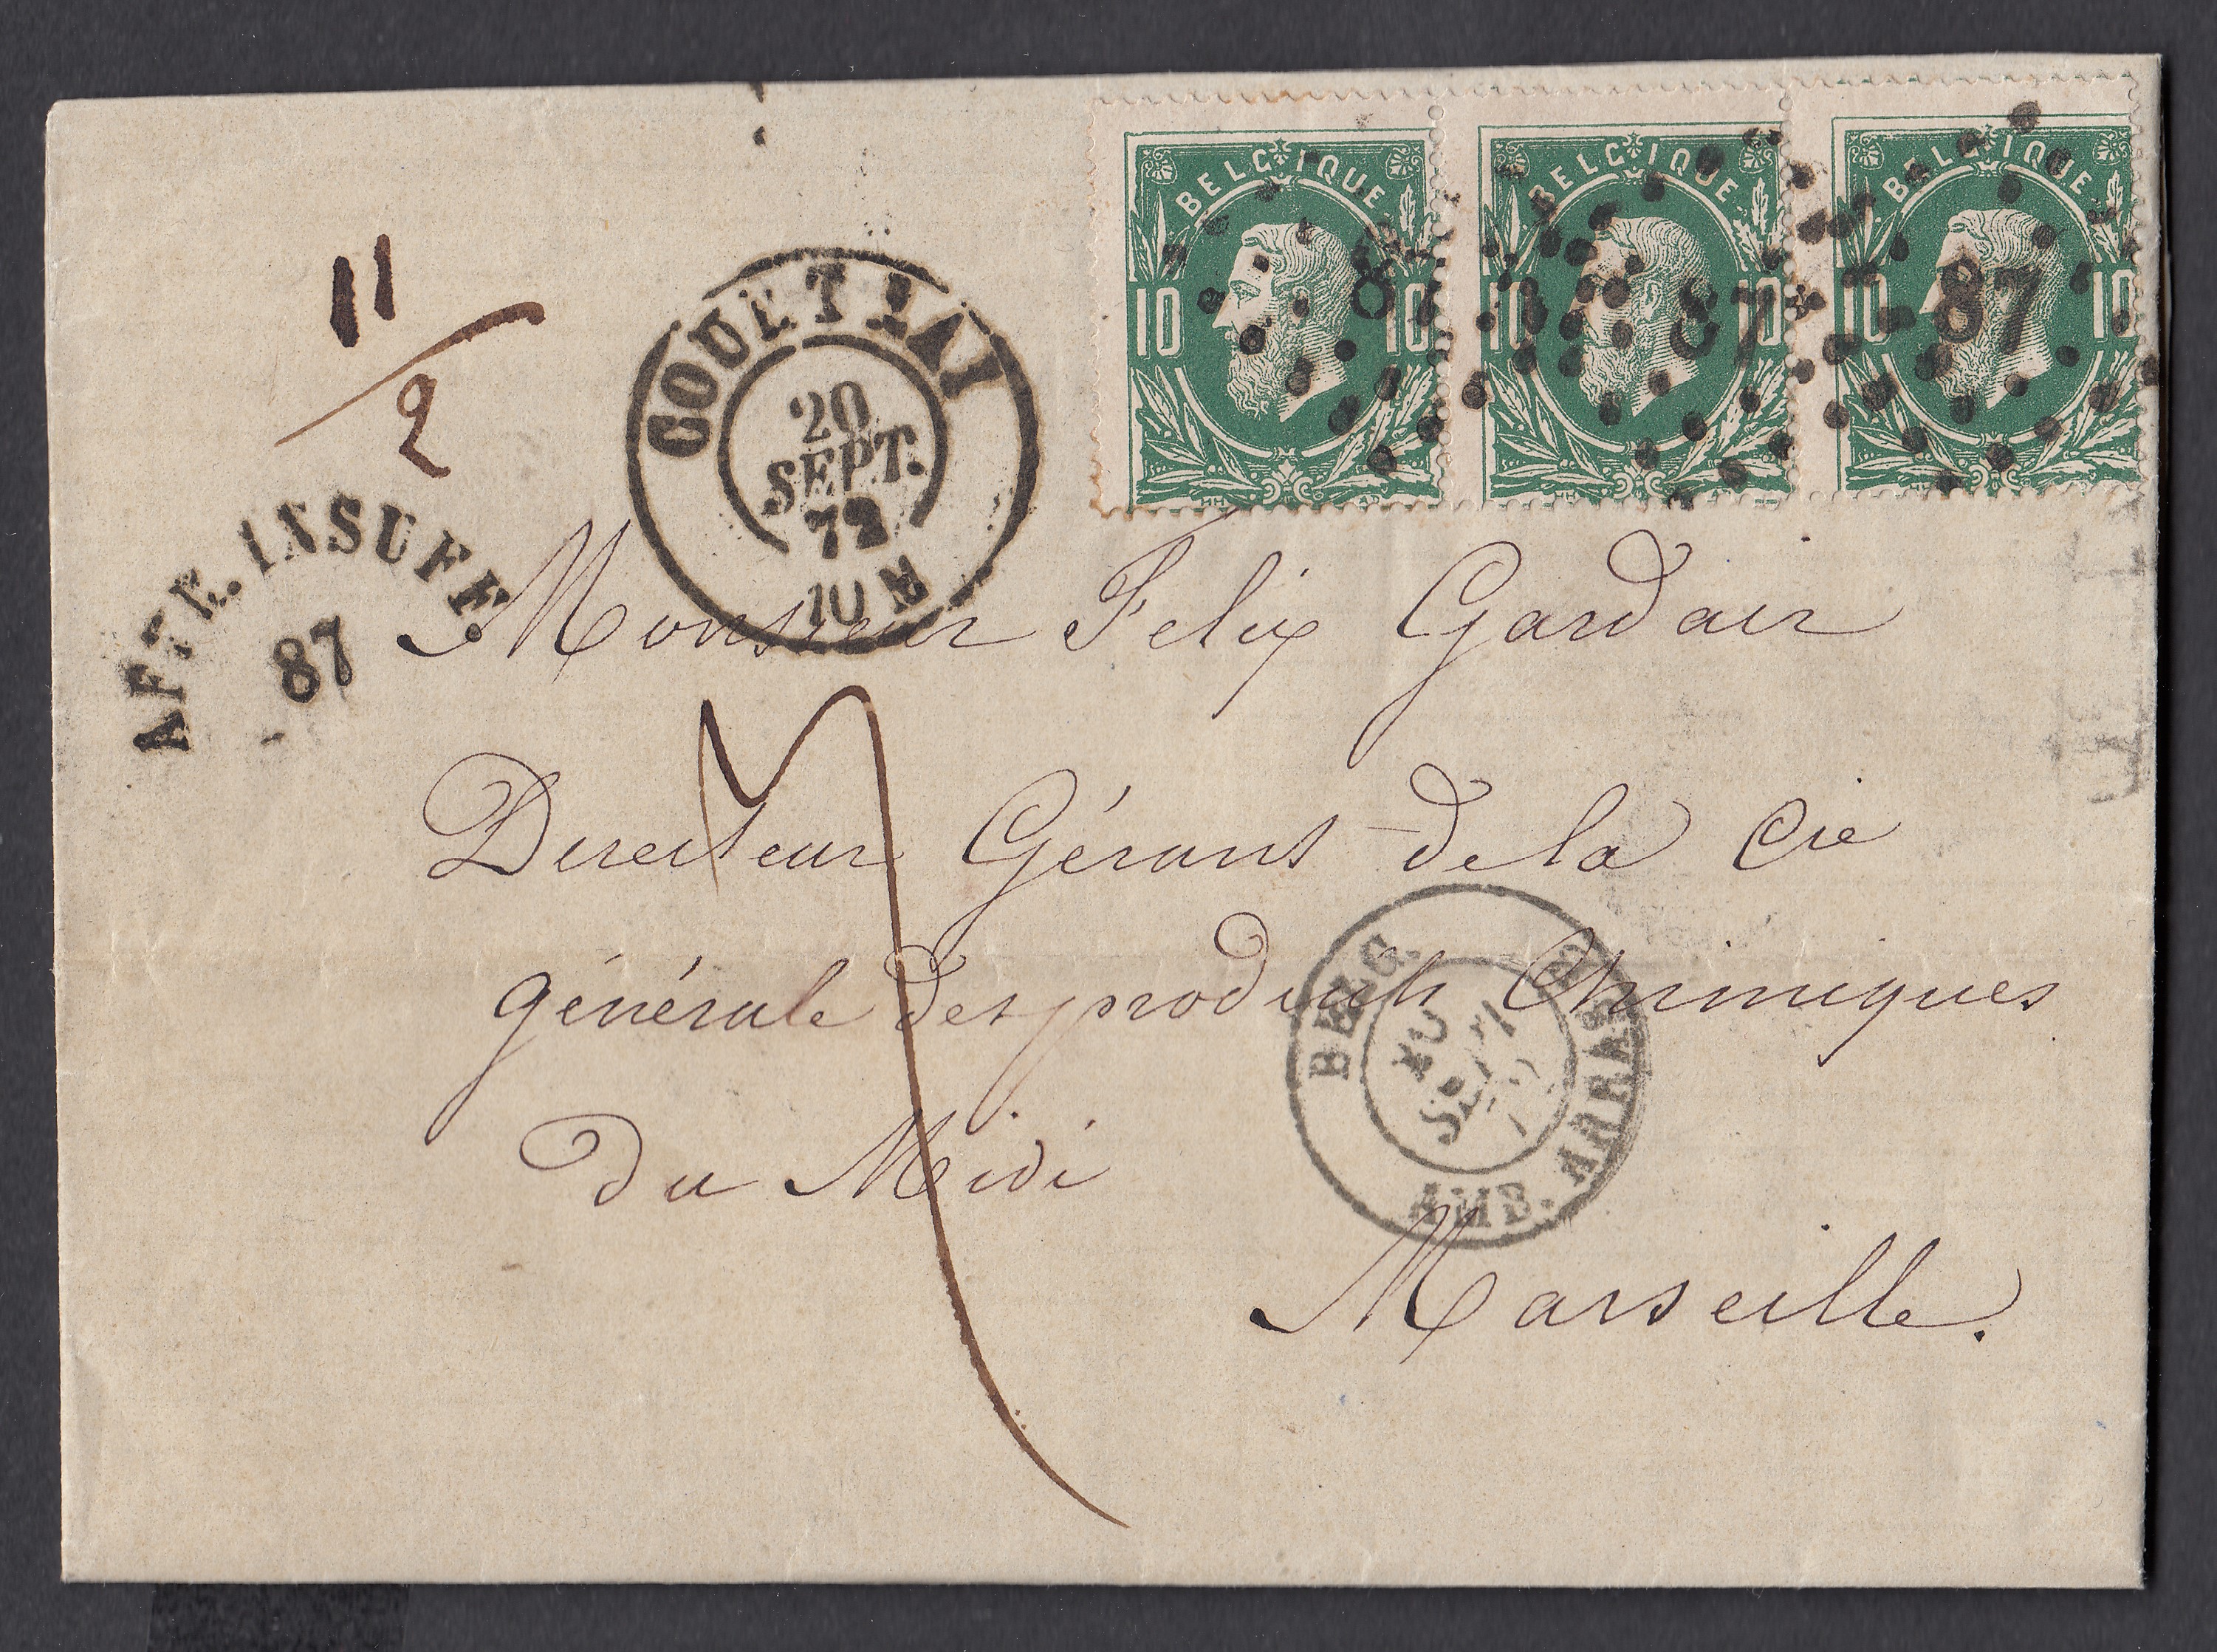 BELGIQUE
10 10
BELGIQUE
10 10
BELGIQUE
10 10
8
87
87
11
/
2
COURTRAI
20
SEPT.
72
10 M
AFFR. INSUFF.
87
Monsieur Felix Gardair
Directeur Gérant de la Cie
générale des produits Chimiques
du Midi
Marseille.
BELG.
AMB. ARRAS
SEPT